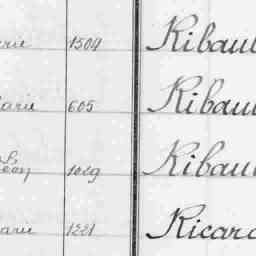 erie 1504 Ribaul
Marie 605 Ribau
Léon 1029 Ribau
Marie 1221 Ricard